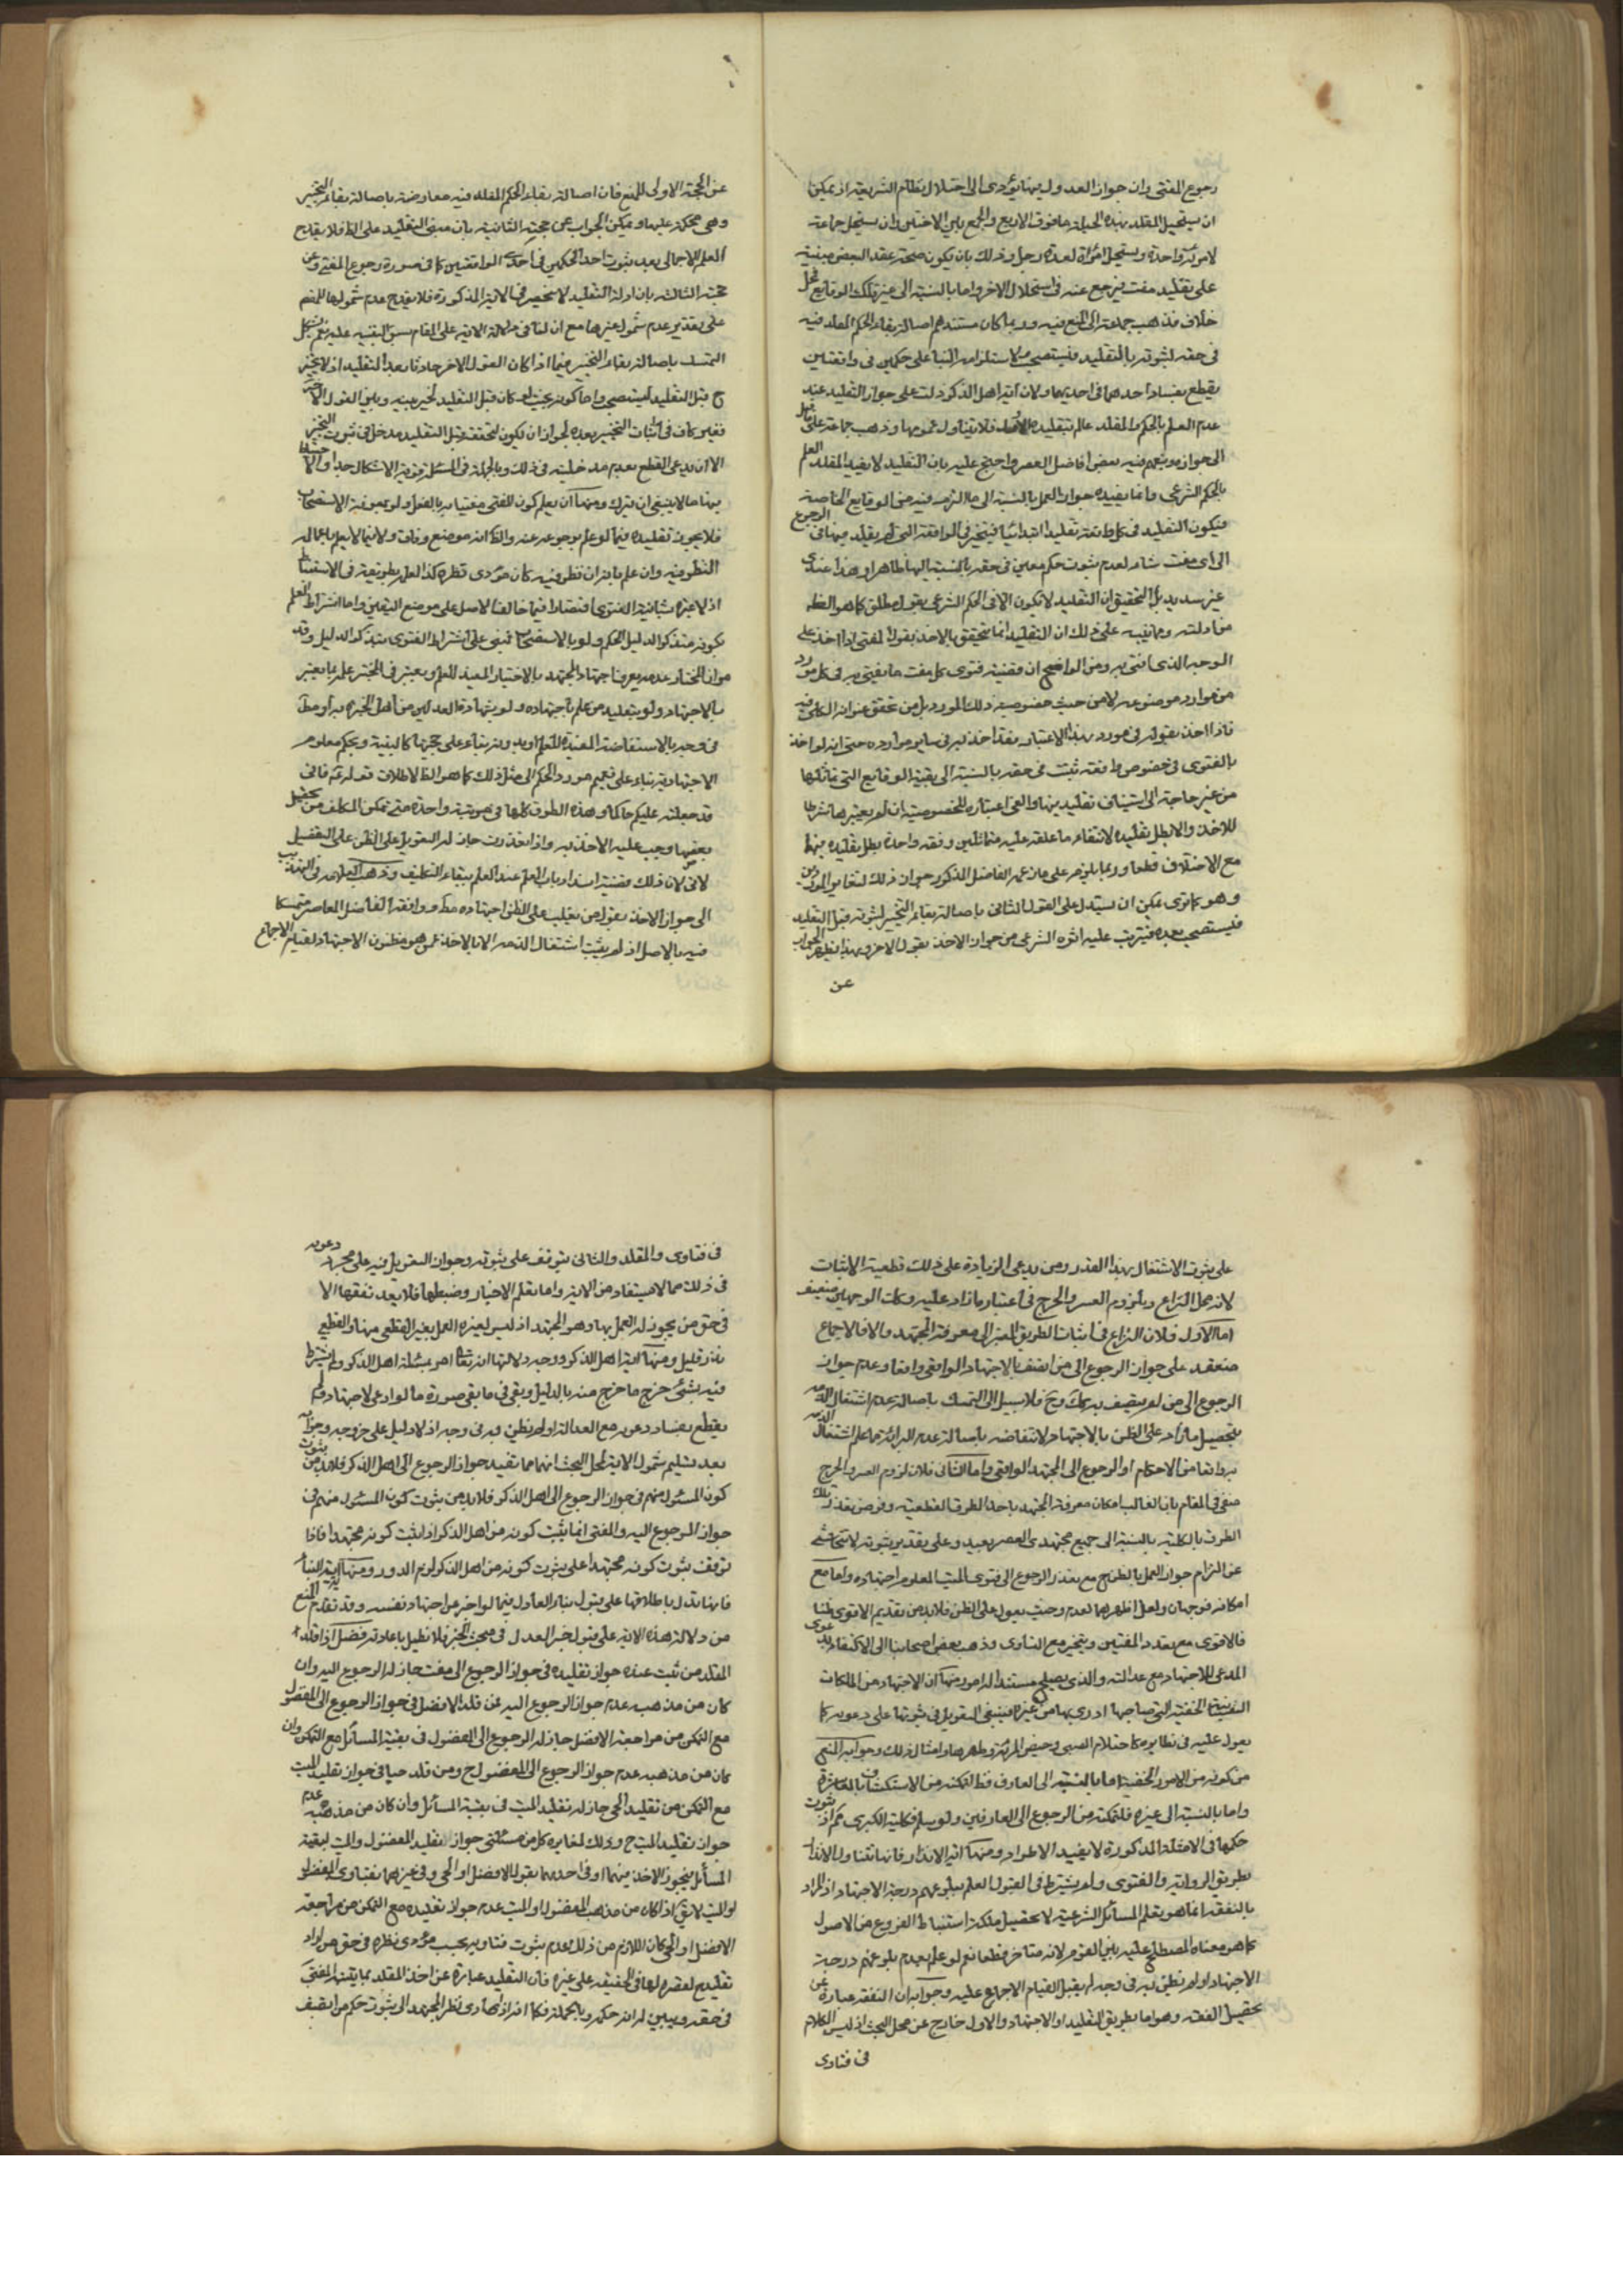 رجوع المفتى وان جواز العدول فيها يؤدى الى اختلال نظام الشريعة اذ يمكن
ان يستحيل المقلد بهذه الحيلة ما فوق الاربع والجمع بين الاختين وان يستحل جماعة
لامرأة واحدة ويستحل امرأة لعدة رجل وذلك بان يكون صحة عقد البعض مبنية
على تقليد مفت يرجع عنه فى استحلال الاخر واما بالنسبة الى غير تلك الوقايع فمحل
خلاف فذهب جماعة الى المنع فيه وربما كان مستندهم اصالة بقاء الحكم المقلد فيه
فى حقه لثبوته بالتقليد فيستصحب ولاستلزامه البناء على حكمين فى واقعتين
يقطع بفساد احدهما فى احديهما ولان آية اهل الذكر دلت على جواز التقليد عند
عدم العلم بالحكم والمقلد عالم بتقليده الاول فلا يتناوله عمومها وذهب جماعة على ما قيل
الى جوازه وتبعهم فيه بعض افاضل العصر واحتج عليه بان التقليد لا يفيد المقلد العلم
بالحكم الشرعى وانما يفيده جواز العمل بالنسبة الى ما التزمه فيه من الوقايع الخاصة
فيكون التقليد فى كل واقعة تقليدا ابتدائيا فيتخير فى الواقعة التى لم يقلد فيها فى الرجوع
الى اى مفت شاء لعدم ثبوت حكم معين فى حقه بالنسبة اليها ظاهرا وهذا عندى
غير سديد بل التحقيق ان التقليد لا يكون الا فى الحكم الشرعى بقول مطلق كما هو الظ
من ادلته ومما ينبه على ذلك ان التقليد انما يتحقق بالاخذ بقول المفتى اذا اخذ على
الوجه الذى افتى به ومن الواضح ان قضية فتوى كل مفت ما يفتى به فى كل مورد
من موارد موضوعه لا من حيث خصوصية ذلك المورد بل من تحقق عنوانه الكلى فيه
فاذا اخذ بقوله فى مورد بهذا الاعتبار فقد اخذ به فى ساير موارده حتى انه لو اخذ
بالفتوى فى خصوص واقعة ثبت فى حقه بالنسبة الى بقية الوقايع التى تماثلها
من غير حاجة الى استيناف تقليد فيها والغى اعتباره للخصوصية ان لم يعتبرها شرطا
للاخذ والا بطل تقليده لانتفاء ما علقه عليه
مع الاختلاف قطعا وربما يلزم على ما زعمه الفاضل المذكور جواز ذلك لتغاير الموردين
وهو كما ترى يمكن ان يستدل على القول الثانى باصالة بقاء التخيير لثبوته قبل التقليد
فيستصحب بعده فيترتب عليه اثره الشرعى من جواز الاخذ بقول الاخر وبهذا يظهر الجواب
عن
عن الحجة الاولى للمنع فان اصالة بقاء الحكم المقلد فيه معارضة باصالة بقاء التخيير
وهى محكمة عليها ويمكن الجواب عن حجته الثانية بان مبنى التقليد على الظ فلا يقدح
العلم الاجمالى بعد ثبوت احد الحكمين فى احدى الواقعتين كما فى صورة رجوع المفتى وعن
حجته الثالثة بان ادلة التقليد لا تنحصر فى الاية المذكورة فلا يقدح عدم شمولها للمنع
على تقدير عدم شمول غيرها مع ان لنا فى دلالة الاية على المقام سبق التنبيه عليه نعم يشكل
التمسك باصالة بقاء التخيير فيما اذا كان القول الاخر حادثا بعد التقليد اذ لا تخيير
ح قبل التقليد ليستصحب واما كونه بحيث لو كان قبل التقليد لخير بينه وبين القول الاخر
فغير كاف فى اثبات التخيير بعده لجواز ان يكون لتحققه قبل التقليد مدخل فى ثبوت التخيير
الا ان يدعى القطع بعدم مدخليته فى ذلك وبالجملة فى المسئلة قوية الاشكال جدا والاحتياط
فيها مما لا ينبغى ان يترك ومنها ان يعلم كون المفتى مفتيا به بالفعل ولو بمعونة الاستصحاب
فلا يجوز تقليده فيما لو علم برجوعه عنه والظ انه موضع وفاق ولا فيما لا يعلم باعماله
النظر فيه وان علم بانه ان نظر فيه كان مؤدى نظره كذا لعلم بطريقته فى الاستنباط
اذ لا عبرة بشانية الفتوى اقتصارا فيما خالف الاصل على موضع اليقين واما اشتراط العلم
بكونه متذكرا لدليل الحكم ولو بالاستصحاب فمبنى على اشتراط الفتوى بتذكر الدليل وقد
مر ان المختار عدمه يعرف اجتهاد المجتهد بالاختبار المفيد للعلم ويعتبر فى المختبر علمه بما يعتبر
بالاجتهاد ولو بتقليد من علم باجتهاده ولو بشهادة العدلين من اهل الخبرة به او مط
فى وجه بالاستفاضة المفيدة للعلم او بدونه بناء على حجيتها كالبينة وبحكم معلوم
الاجتهاد به بناء على تعميم مورد الحكم الى مثل ذلك كما هو الظ لاطلاق قوله ع فانى
قد جعلته عليكم حاكما وهذه الطرق كلها فى مرتبة واحدة متى تمكن المكلف من تحصيل
بعضها وجب عليه الاخذ به واذا تعذرت جاز له التعويل على الظن على التفصيل
لاتى لان ذلك قضية انسداد باب العلم عند العلم ببقاء التكليف وذهب العلامة فى التهذيب
الى جواز الاخذ بقول من يغلب على الظن اجتهاده مط ووافقه الفاضل المعاصر متمسكا
فيه بالاصل اذ لم يثبت اشتغال الذمة الا بالاخذ عمن هو مظنون الاجتهاد لقيام الاجماع
على ثبوت الاشتغال بهذا القدر ومن يدعى الزيادة على ذلك فعليه الاثبات
لانه محل النزاع وبلزوم العسر والحرج فى اعتبار ما زاد عليه وكلا الوجهين ضعيف
اما الاول فلان النزاع فى اثبات الطريق المعتبر الى معرفة المجتهد والا فالاجماع
منعقد على جواز الرجوع الى من اتصف بالاجتهاد الواقعى واقعا وعدم جواز
الرجوع الى من لم يتصف به كك وح فلا سبيل الى التمسك باصالة عدم اشتغال الذمة
بتحصيل ما زاد على الظن بالاجتهاد لانتقاضه باصالة عدم البرائة مما علم اشتغال الذمة
به واقعا من الاحكام او الرجوع الى المجتهد الواقعى واما الثانى فلان لزوم العسر والحرج
منفى فى المقام بان الغالب امكان معرفة المجتهد باحد الطرق القطعية وفرض تعذر تلك
الطرق بالكلية بالنسبة الى جميع مجتهدى العصر بعيد وعلى تقدير ثبوته لا نتحاشى
عن التزام جواز العمل بالظن ح مع تعذر الرجوع الى فتوى الميت المعلوم اجتهاده واما مع
امكانه فوجهان ولعل اظهرهما العدم وحيث يعول على الظن فلا بد من تقديم الاقوى ظنا
فالاقوى مع تعدد المفتين ويتخير مع التساوى وذهب بعض اصحابنا الى الاكتفاء بدعوى
المدعى للاجتهاد مع عدالته والذى يصلح مستندا له امور منها ان الاجتهاد من الملكات
النفسية الخفية التى صاحبها ادرى بها من غيره فينبغى التعويل فى ثبوتها على دعويه كما
يعول عليه فى نظايره كاحتلام الصبى وحيض المرأة وطهرها وامثال ذلك وجوابه المنع
من كونه من الامور الخفية اما بالنسبة الى العارف فظ لتمكنه من الاستكشاف بالمعاشرة
واما بالنسبة الى غيره فلتمكنه من الرجوع الى العارفين ولو سلم فكلية الكبرى مم اذ ثبوت
حكمها فى الامثلة المذكورة لا يفيد الاطراد ومنها اية الانذار فانها تتناول الانذار
بطريق الرواية والفتوى ولم يشترط فى القبول العلم ببلوغهم درجة الاجتهاد اذ المراد
بالتفقه انما هو تعلم المسائل الشرعية لا تحصيل ملكة استنباط الفروع من الاصول
كما هو معناه المصطلح عليه بين القوم لانه متاخر قطعا نعم لو علم بعدم بلوغهم درجة
الاجتهاد او لم يظن به فى وجه لم يقبل لقيام الاجماع عليه وجوابه ان التفقه عبارة عن
تحصيل الفقه وهو اما بطريق التقليد او الاجتهاد والاول خارج عن محل البحث اذ ليس الكلام
فى فتاوى
فى فتاوى والمقلد والثانى يتوقف على ثبوته وجواز التعويل فيه على مجرد دعويه
فى ذلك مما لا يستفاد من الاية واما تعلم الاخبار وضبطها فلا يعد تفقها الا
فى حق من يجوز له العمل بها وهو المجتهد اذ ليس لغيره العمل بغير القطعى منها والقطعى
نزر قليل ومنها اية اهل الذكر ووجه دلالتها انه تعالى امر بمسئلة اهل الذكر ولم يشترط
فيه بشىء خرج ما خرج منه بالدليل وبقى فى ما بقى صورة ما لو ادعى الاجتهاد ولم
يقطع بفساد دعويه مع العدالة او لم يظن به فى وجه اذ لا دليل على خروجه وجوابه
بعد تسليم شمول الاية لمحل البحث انها مما تفيد جواز الرجوع الى اهل الذكر فلا بد من ثبوت
كون المسئول منهم فى جواز الرجوع الى اهل الذكر فلا بد من ثبوت كون المسئول منهم فى
جواز الرجوع اليه والمفتى انما يثبت كونه من اهل الذكر اذا ثبت كونه مجتهدا فاذا
توقف ثبوت كونه مجتهدا على ثبوت كونه من اهل الذكر لزم الدور ومنها اية النبأ
فانها تدل باطلاقها على قبول نبأ العادل فيما لو اخبر عن اجتهاد نفسه وقد تقدم المنع
من دلالة هذه الاية على قبول خبر العدل فى مبحث الخبر فلا نطيل باعادته فصل اذا قلد
المقلد من ثبت عنده جواز تقليده فى جواز الرجوع الى مفت جاز له الرجوع اليه وان
كان من مذهبه عدم جواز الرجوع اليه فمن قلد الافضل فى جواز الرجوع الى المفضول
مع التمكن من مراجعة الافضل جاز له الرجوع الى المفضول فى بقية المسائل مع التمكن وان
كان من مذهبه عدم جواز الرجوع الى المفضول ح ومن قلد حيا فى جواز تقليد الميت
مع التمكن من تقليد الحى جاز له تقليد الميت فى بقية المسائل وان كان من مذهبه عدم
جواز تقليد الميت ح وذلك لمغايرة كل من مسئلتى جواز تقليد المفضول والميت لبقية
المسائل فيجوز الاخذ فيهما او فى احديهما بقول الافضل او الحى وفى غيرهما بفتاوى المفضول
او الميت لا يق اذا كان من مذهب المفضول او الميت عدم جواز تقليده مع التمكن من مراجعة
الافضل او الحى كان اللازم من ذلك عدم ثبوت فتاويه بحسب مؤدى نظره فى حق من اراد
تقليده لقصره لها فى الحقيقة على غيره فان التقليد عبارة عن اخذ المقلد بما يثبته المفتى
فى حقه ويبين له انه حكمه وبالجملة فكما انه اذا ادى نظر المجتهد الى ثبوت حكم من اتصف